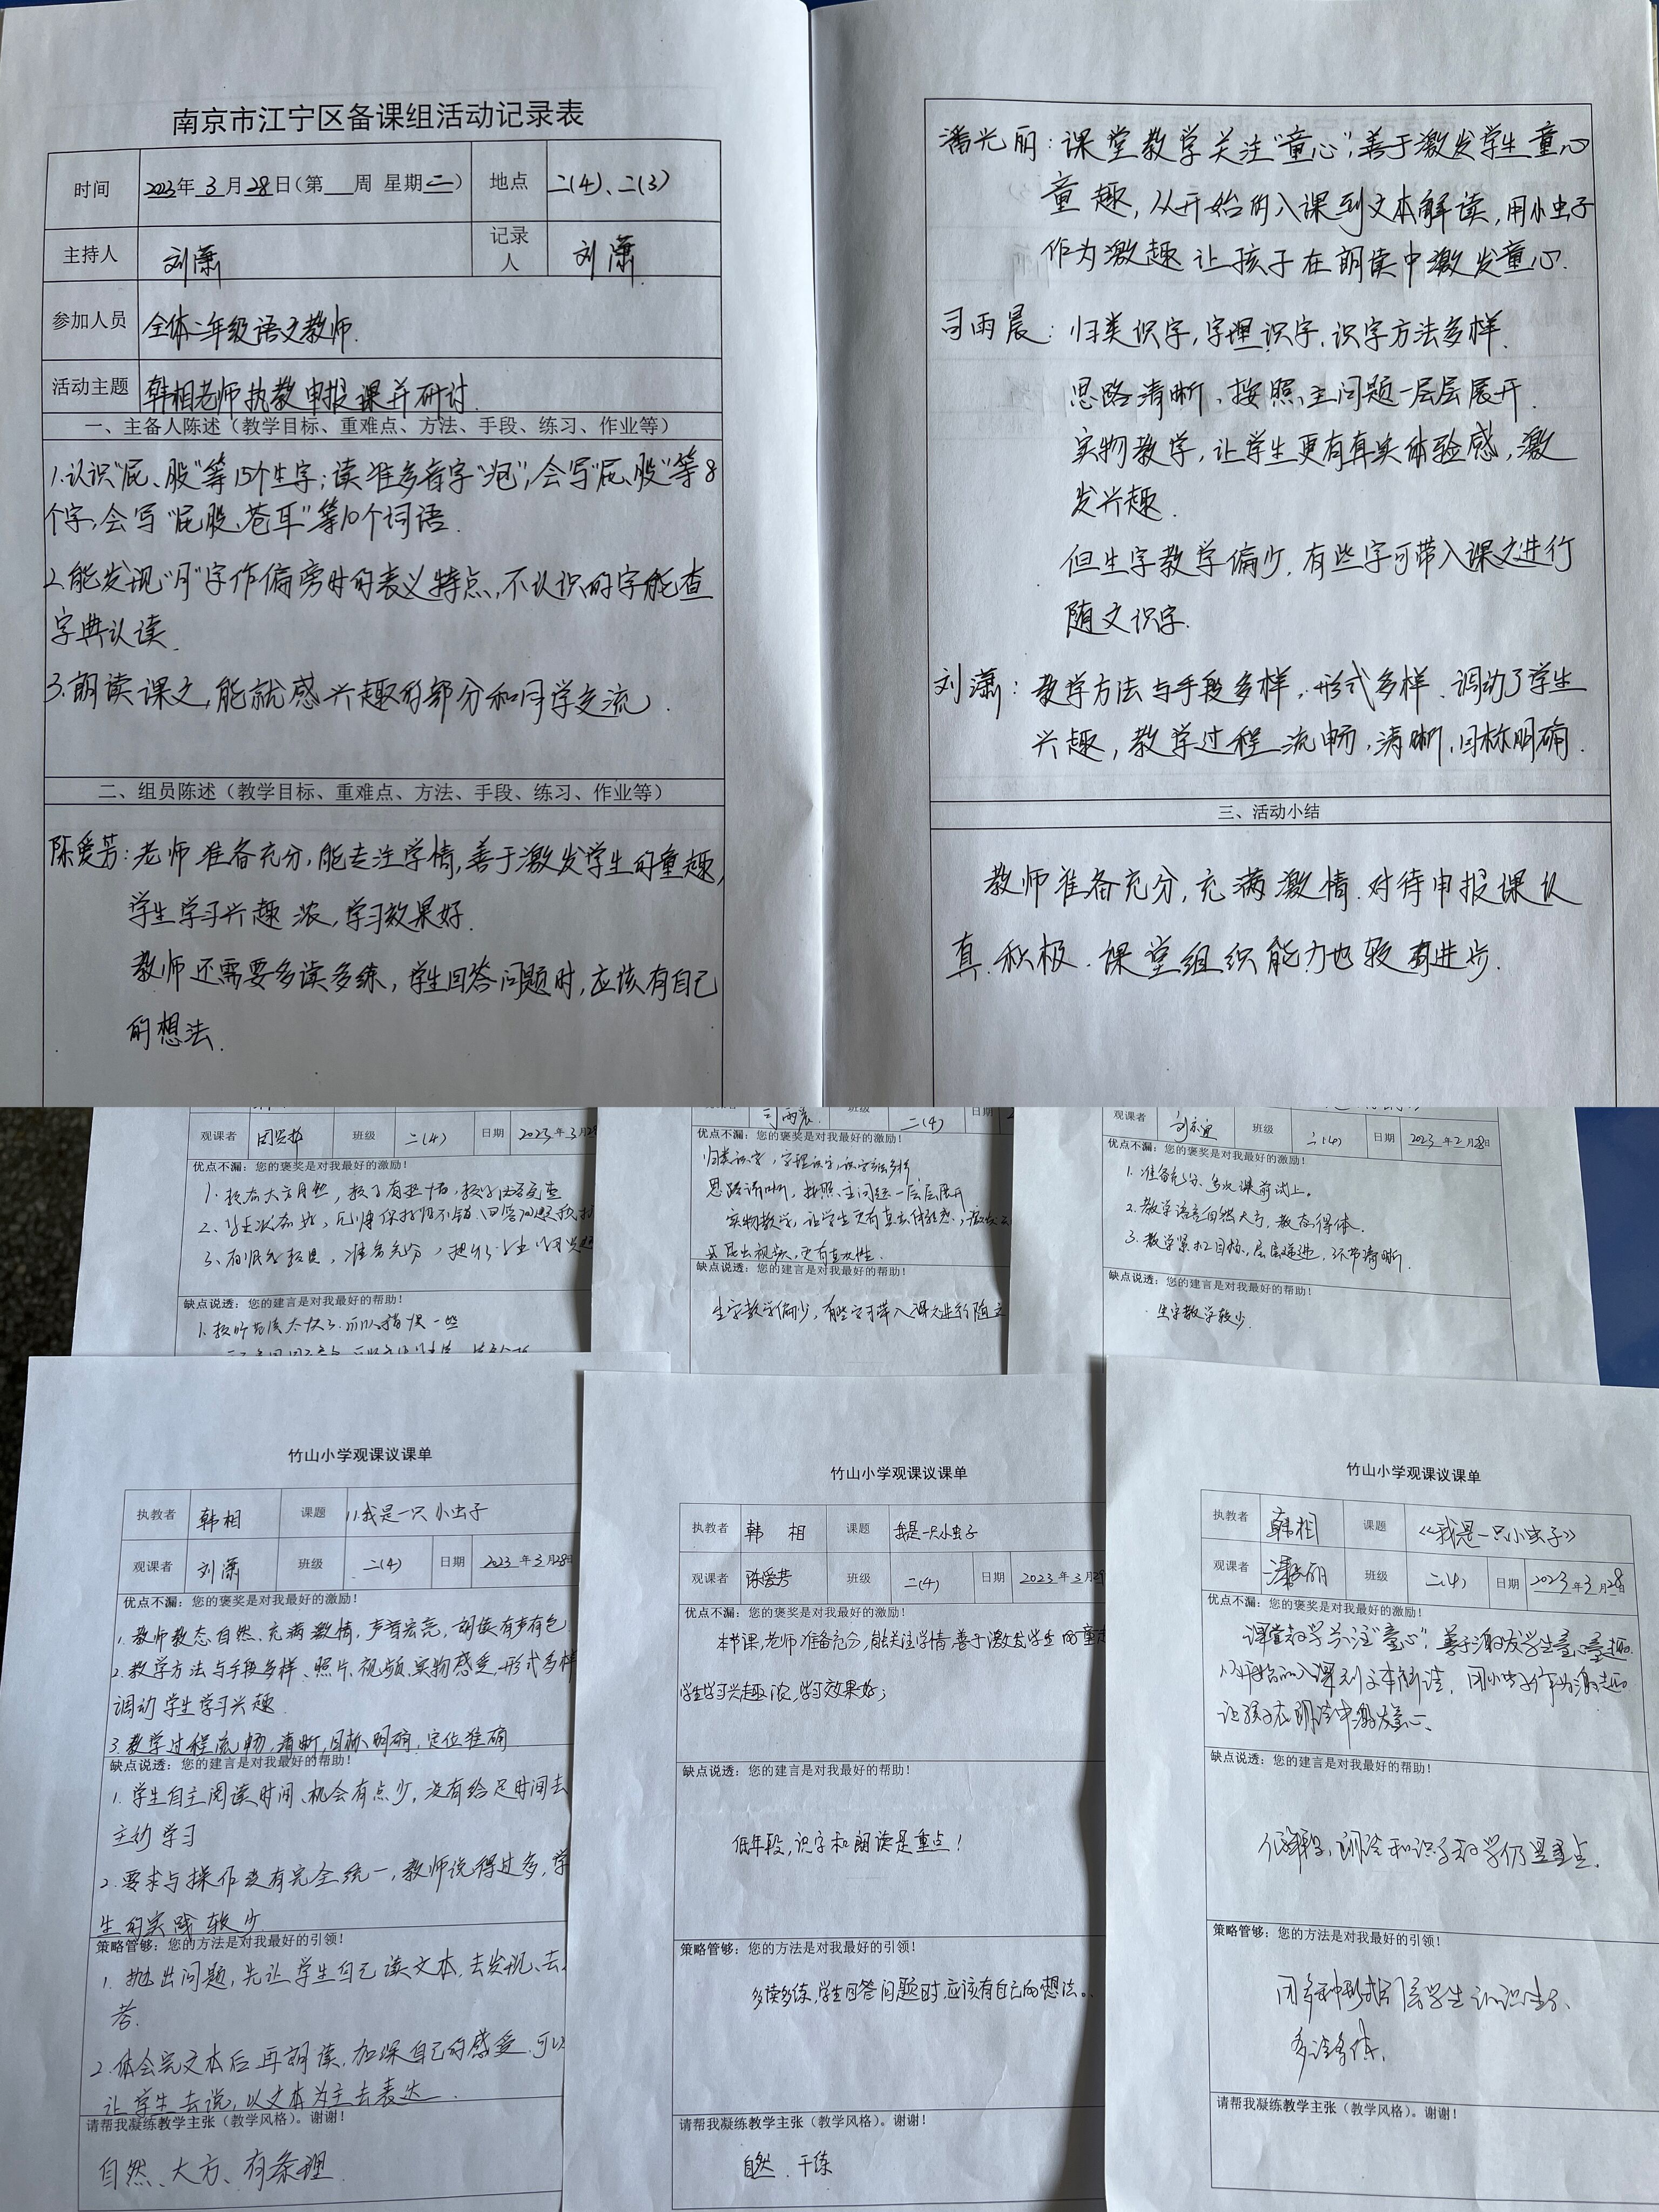 南京市江宁区备课组活动记录表
时间 2023年 3 月 28 日(第 周 星期二) 地点 二(4)、二(3)
主持人 刘潇 记录人 刘潇
参加人员 全体二年级语文教师.
活动主题 韩相老师执教申报课并研讨.
一、主备人陈述(教学目标、重难点、方法、手段、练习、作业等)
1.认识“屁、股”等15个生字;读准多音字“泡”,会写“屁、股”等8
个字,会写“屁股、苍耳”等10个词语.
2.能发现“月”字作偏旁时的表义特点,不认识的字能查
字典认读.
3.朗读课文,能就感兴趣的部分和同学交流.
二、组员陈述(教学目标、重难点、方法、手段、练习、作业等)
陈爱芳:老师准备充分,能专注学情,善于激发学生的童趣,
学生学习兴趣浓,学习效果好.
教师还需要多读多练,学生回答问题时,应该有自己
的想法.
潘光丽:课堂教学关注“童心”,善于激发学生童心
童趣,从开始的入课到文本解读,用小虫子
作为激趣 让孩子在朗读中激发童心.
司雨晨:归类识字,字理识字,识字方法多样.
思路清晰、按照主问题一层层展开.
实物教学,让学生更有真实体验感,激
发兴趣.
但生字教学偏少,有些字可带入课文进行
随文识字.
刘潇:教学方法与手段多样,形式多样、调动了学生
兴趣,教学过程流畅,清晰,目标明确.
三、活动小结
教师准备充分,充满激情.对待申报课认
真.积极.课堂组织能力也较有进步.
观课者 班级 二(4) 日期 2023年3月28
优点不漏:您的褒奖是对我最好的激励!
缺点说透:您的建言是对我最好的帮助!
司雨晨. 班级 二(4) 日期
优点不漏:您的褒奖是对我最好的激励!
归类识字,字理识字,识字方法多样
思路清晰,按照主问题一层层展开
实物教学,让学生更有真实体验感,
缺点说透:您的建言是对我最好的帮助!
生字教学偏少,有些字可带入课文进行随文
观课者 班级 二(4) 日期 2023年2月28日
优点不漏:您的褒奖是对我最好的激励!
1.准备充分、多次课前试上。
2.教学语言自然大方,教态得体.
3.教学紧扣目标,层层递进,环节清晰.
缺点说透:您的建言是对我最好的帮助!
生字教学较少.
竹山小学观课议课单
执教者 韩相 课题 11.我是一只小虫子
观课者 刘潇 班级 二(4) 日期 2023年3月28日
优点不漏:您的褒奖是对我最好的激励!
1.教师教态自然.充满激情,声音宏亮,朗读有声有色
2.教学方法与手段多样、照片、视频、实物感受,形式多样
调动学生学习兴趣.
3.教学过程流畅,清晰,目标明确,定位准确
缺点说透:您的建言是对我最好的帮助!
1.学生自主阅读时间、机会有点少,没有给足时间去
主动学习
2.要求与操作没有完全统一,教师说得过多,学
生的实践较少.
策略管够:您的方法是对我最好的引领!
1.抛出问题,先让学生自己读文本,去发现、去
答.
2.体会完文本后再朗读,加深自己的感受.可以
让学生去说,以文本为主去表达.
请帮我凝练教学主张(教学风格)。谢谢!
自然、大方、有条理.
竹山小学观课议课单
执教者 韩相 课题 我是一只小虫子
观课者 陈爱芳 班级 二(4) 日期 2023年3月29
优点不漏:您的褒奖是对我最好的激励!
本节课,老师准备充分,能关注学情,善于激发学生的童趣
学生学习兴趣浓,学习效果好;
缺点说透:您的建言是对我最好的帮助!
低年段,识字和朗读是重点!
策略管够:您的方法是对我最好的引领!
多读多练,学生回答问题时,应该有自己的想法。
请帮我凝练教学主张(教学风格)。谢谢!
自然.干练
竹山小学观课议课单
执教者 韩相 课题 《我是一只小虫子》
观课者 潘光丽 班级 二(4) 日期 2023年3月28日
优点不漏:您的褒奖是对我最好的激励!
课堂教学关注“童心”,善于激发学生童心童趣.
从开始的入课到文本解读,用小虫子作为激趣
让孩子在朗读中激发童心.
缺点说透:您的建言是对我最好的帮助!
低年段,朗读和识字教学仍是重点.
策略管够:您的方法是对我最好的引领!
用多种形式引导学生认识生字、
多读多练.
请帮我凝练教学主张(教学风格)。谢谢!